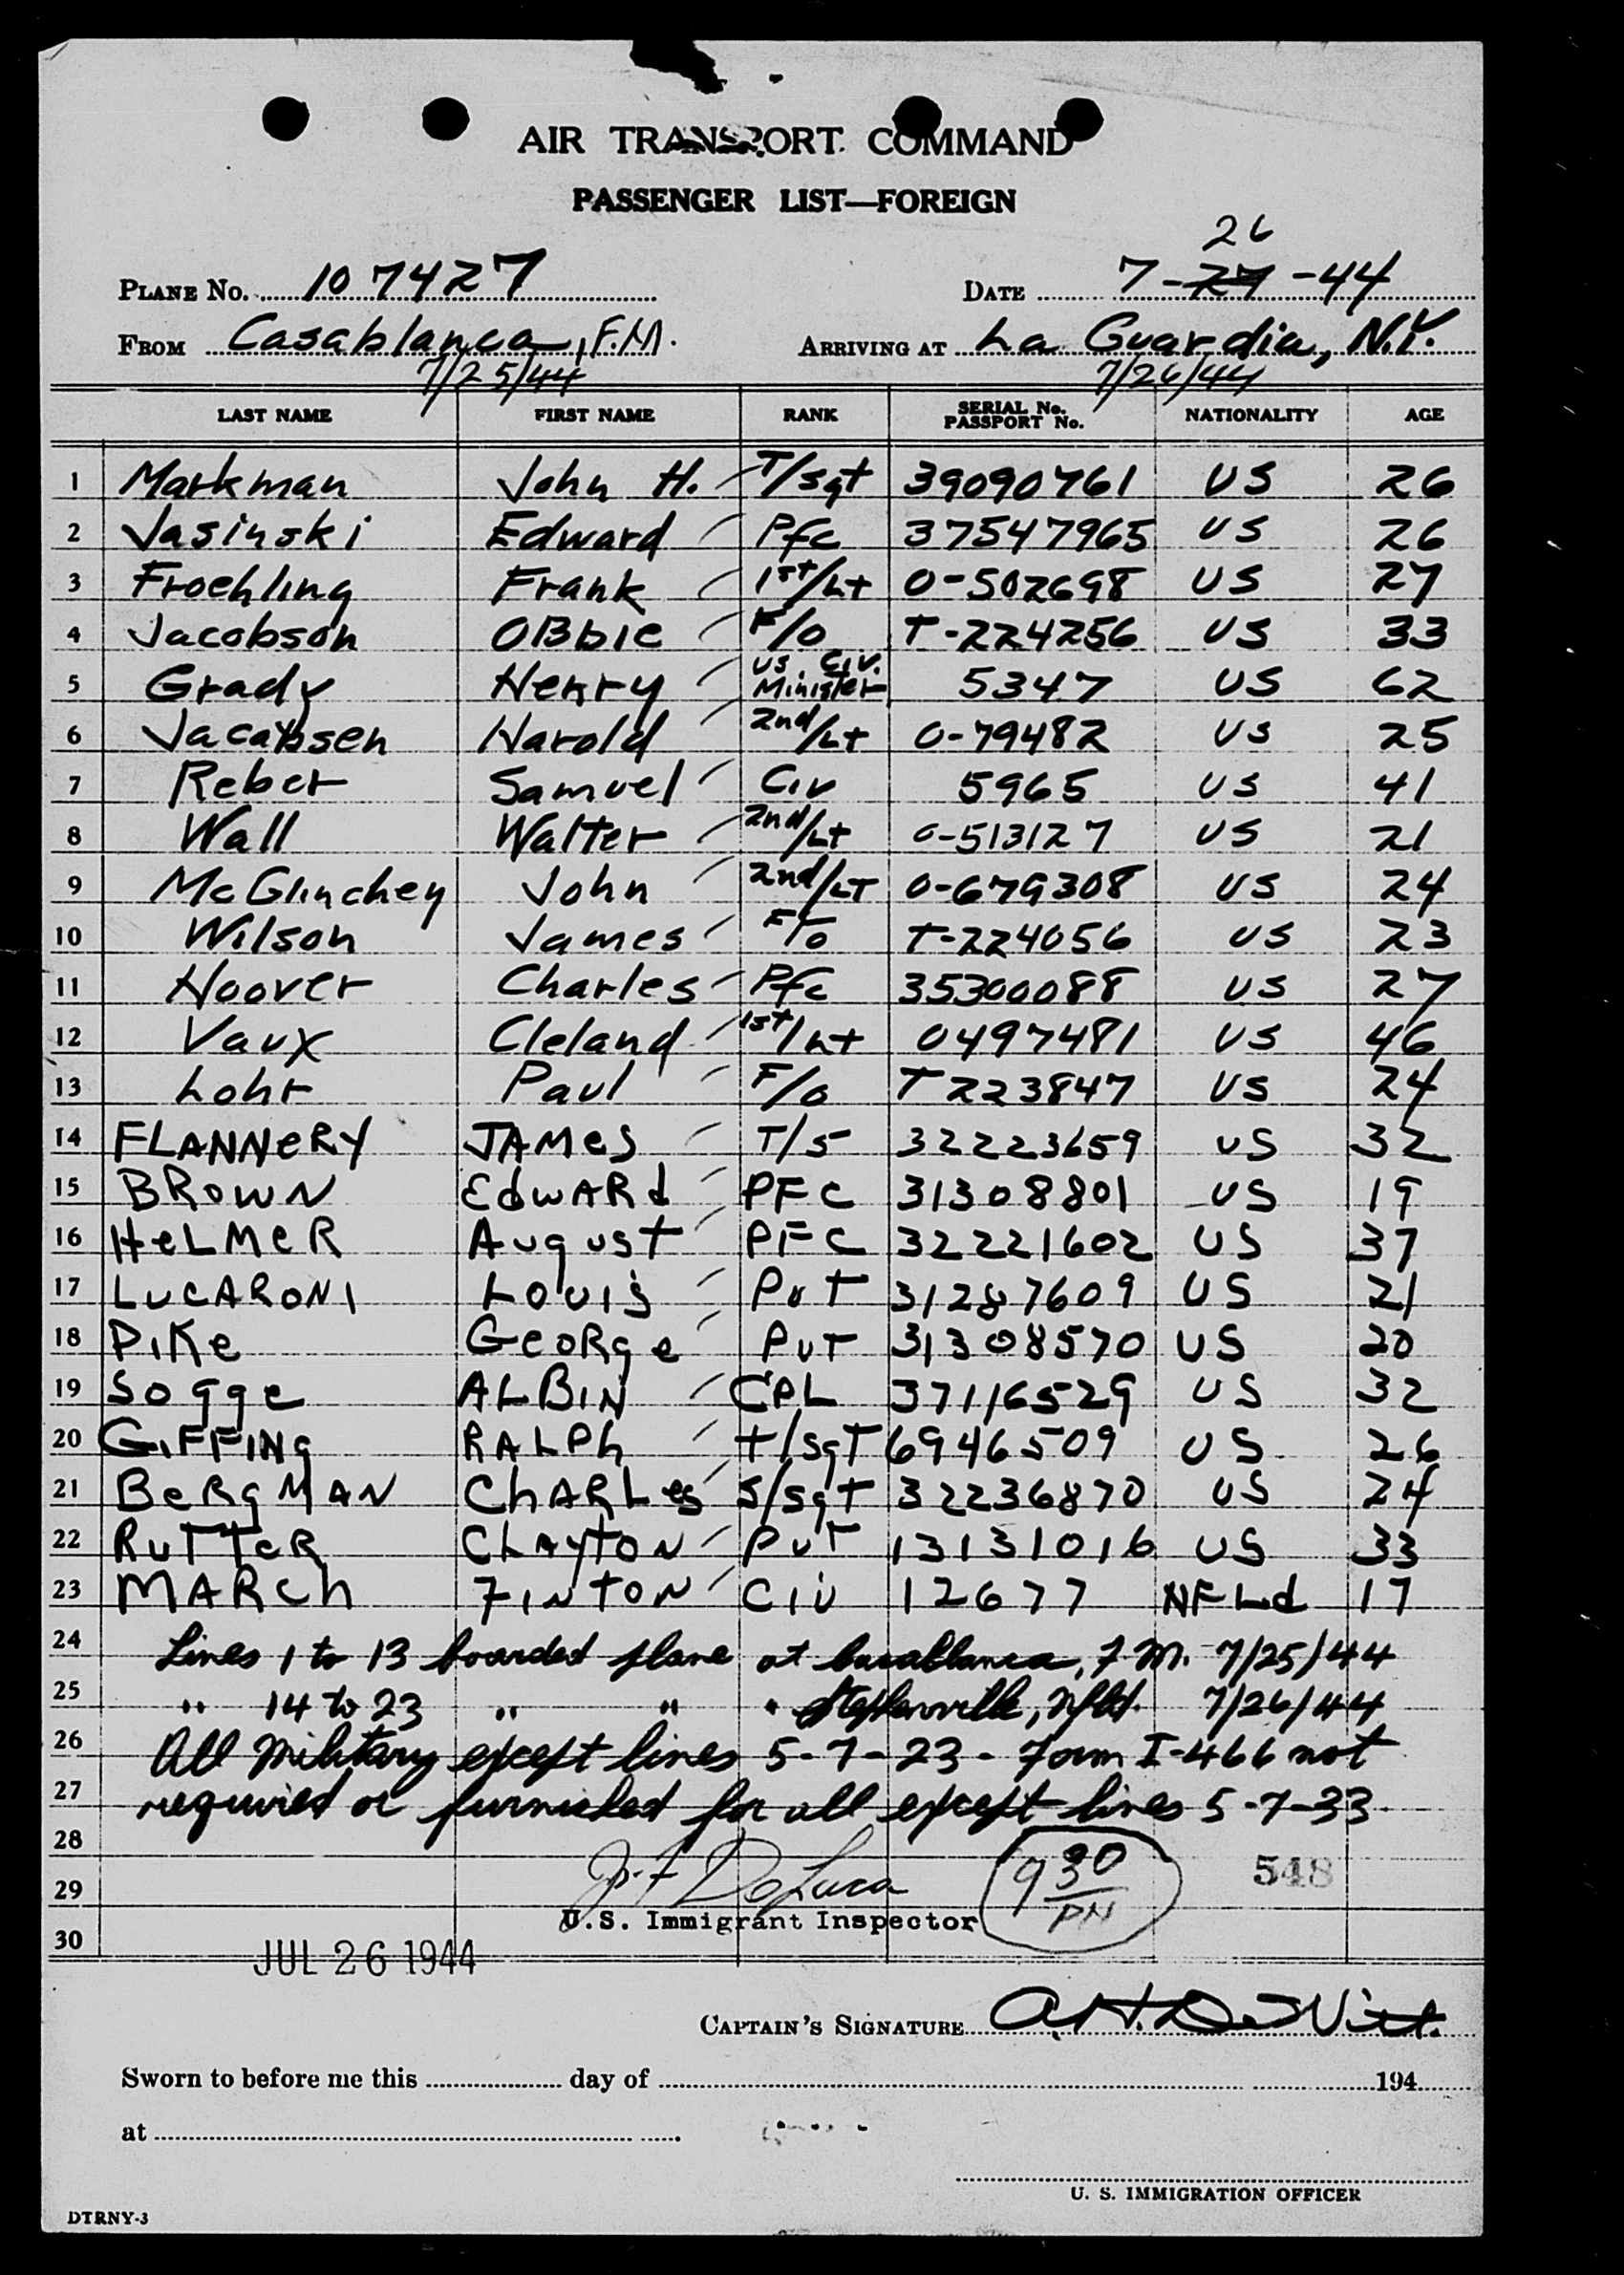 AIR TRANSPORT COMMAND
PASSENGER LIST—FOREIGN
26
PLANE No. 107427 DATE 7-27-44
FROM Casablanca, F.M. ARRIVING AT La Guardia, N.Y.
7/25/44 7/26/44
LAST NAME FIRST NAME RANK SERIAL No. PASSPORT No. NATIONALITY AGE
1 Markman John H. T/Sgt 39090761 US 26
2 Jasinski Edward Pfc 37547965 US 26
3 Froehling Frank 1st/Lt O-502698 US 27
4 Jacobson OBbie F/O T-224256 US 33
5 Grady Henry US Civ. Minister 5347 US 62
6 Jacobsen Harold 2nd/Lt O-79482 US 25
7 Reber Samuel Civ 5965 US 41
8 Wall Walter 2nd/Lt O-513127 US 21
9 McGlinchey John 2nd/LT O-679308 US 24
10 Wilson James F/O T-224056 US 23
11 Hoover Charles Pfc 35300088 US 27
12 Vaux Cleland 1st/Lt 0497481 US 46
13 Lohr Paul F/O T 223847 US 24
14 FLANNeRY JAMeS T/5 32223659 US 32
15 BROWN EdWARd PFC 31308801 US 19
16 HeLMeR August PFC 32221602 US 37
17 LUCARONI Louis PvT 31287609 US 21
18 PiKe GeORge PvT 31308570 US 20
19 Sogge ALBIN CPL 37116529 US 32
20 GIFFINg RALPh T/SgT 6946509 US 26
21 BeRgMAN ChARLes S/Sgt 32236870 US 24
22 RuTTeR CLAYTON PvT 13131016 US 33
23 MARCh FINTON CIV 12677 NFLd 17
24 Lines 1 to 13 boarded plane at Casablanca, F.M. 7/25/44
25 " 14 to 23 " " " Stephenville, Nfld. 7/26/44
26 All Military except lines 5-7-23 - Form I-466 not
27 required or furnished for all except lines 5-7-33
28
29 J.F. DeLuca 9 30 PM 548
U.S. Immigrant Inspector
30
JUL 26 1944
CAPTAIN'S SIGNATURE A.H. DeWitt.
Sworn to before me this day of 194
at
U. S. IMMIGRATION OFFICER
DTRNY-3